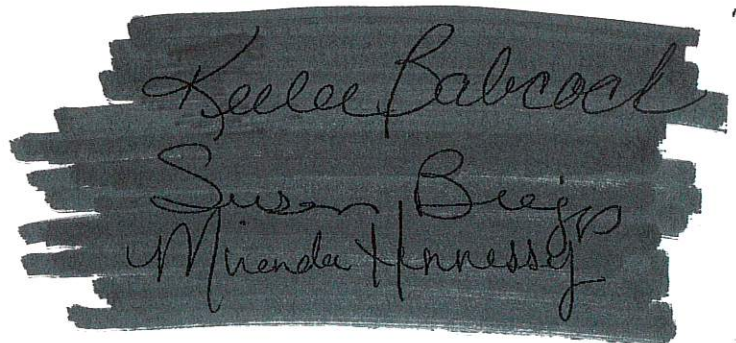 Keelee Babcock
Susan Briggs
Miranda Hennessy